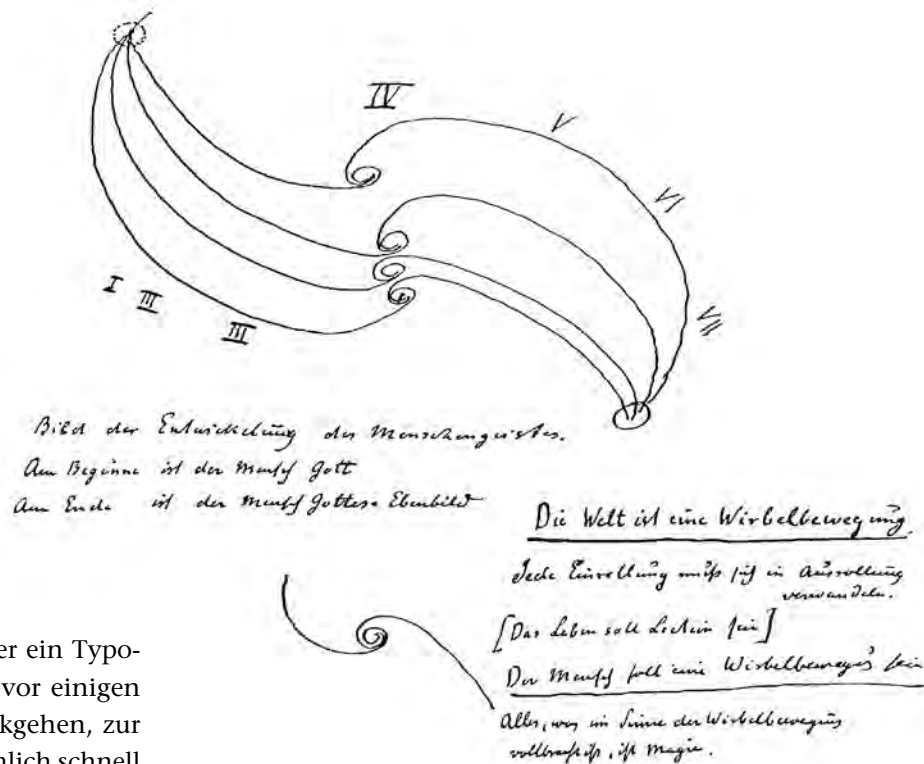 IV
V
VI
VII
I III
III
Bild der Entwickelung des Menschengeistes.
Am Beginne ist der Mensch Gott
Am Ende ist der Mensch Gottes Ebenbild
Die Welt ist eine Wirbelbewegung.
Jede Einrollung muß sich in Ausrollung
verwandeln.
[Das Leben soll sein]
Der Mensch soll eine Wirbelbewegung sein
Alles, was im Sinne der Wirbelbewegung
vollbracht ist, ist Magie.
er ein Typo-
vor einigen
kgehen, zur
nlich schnell